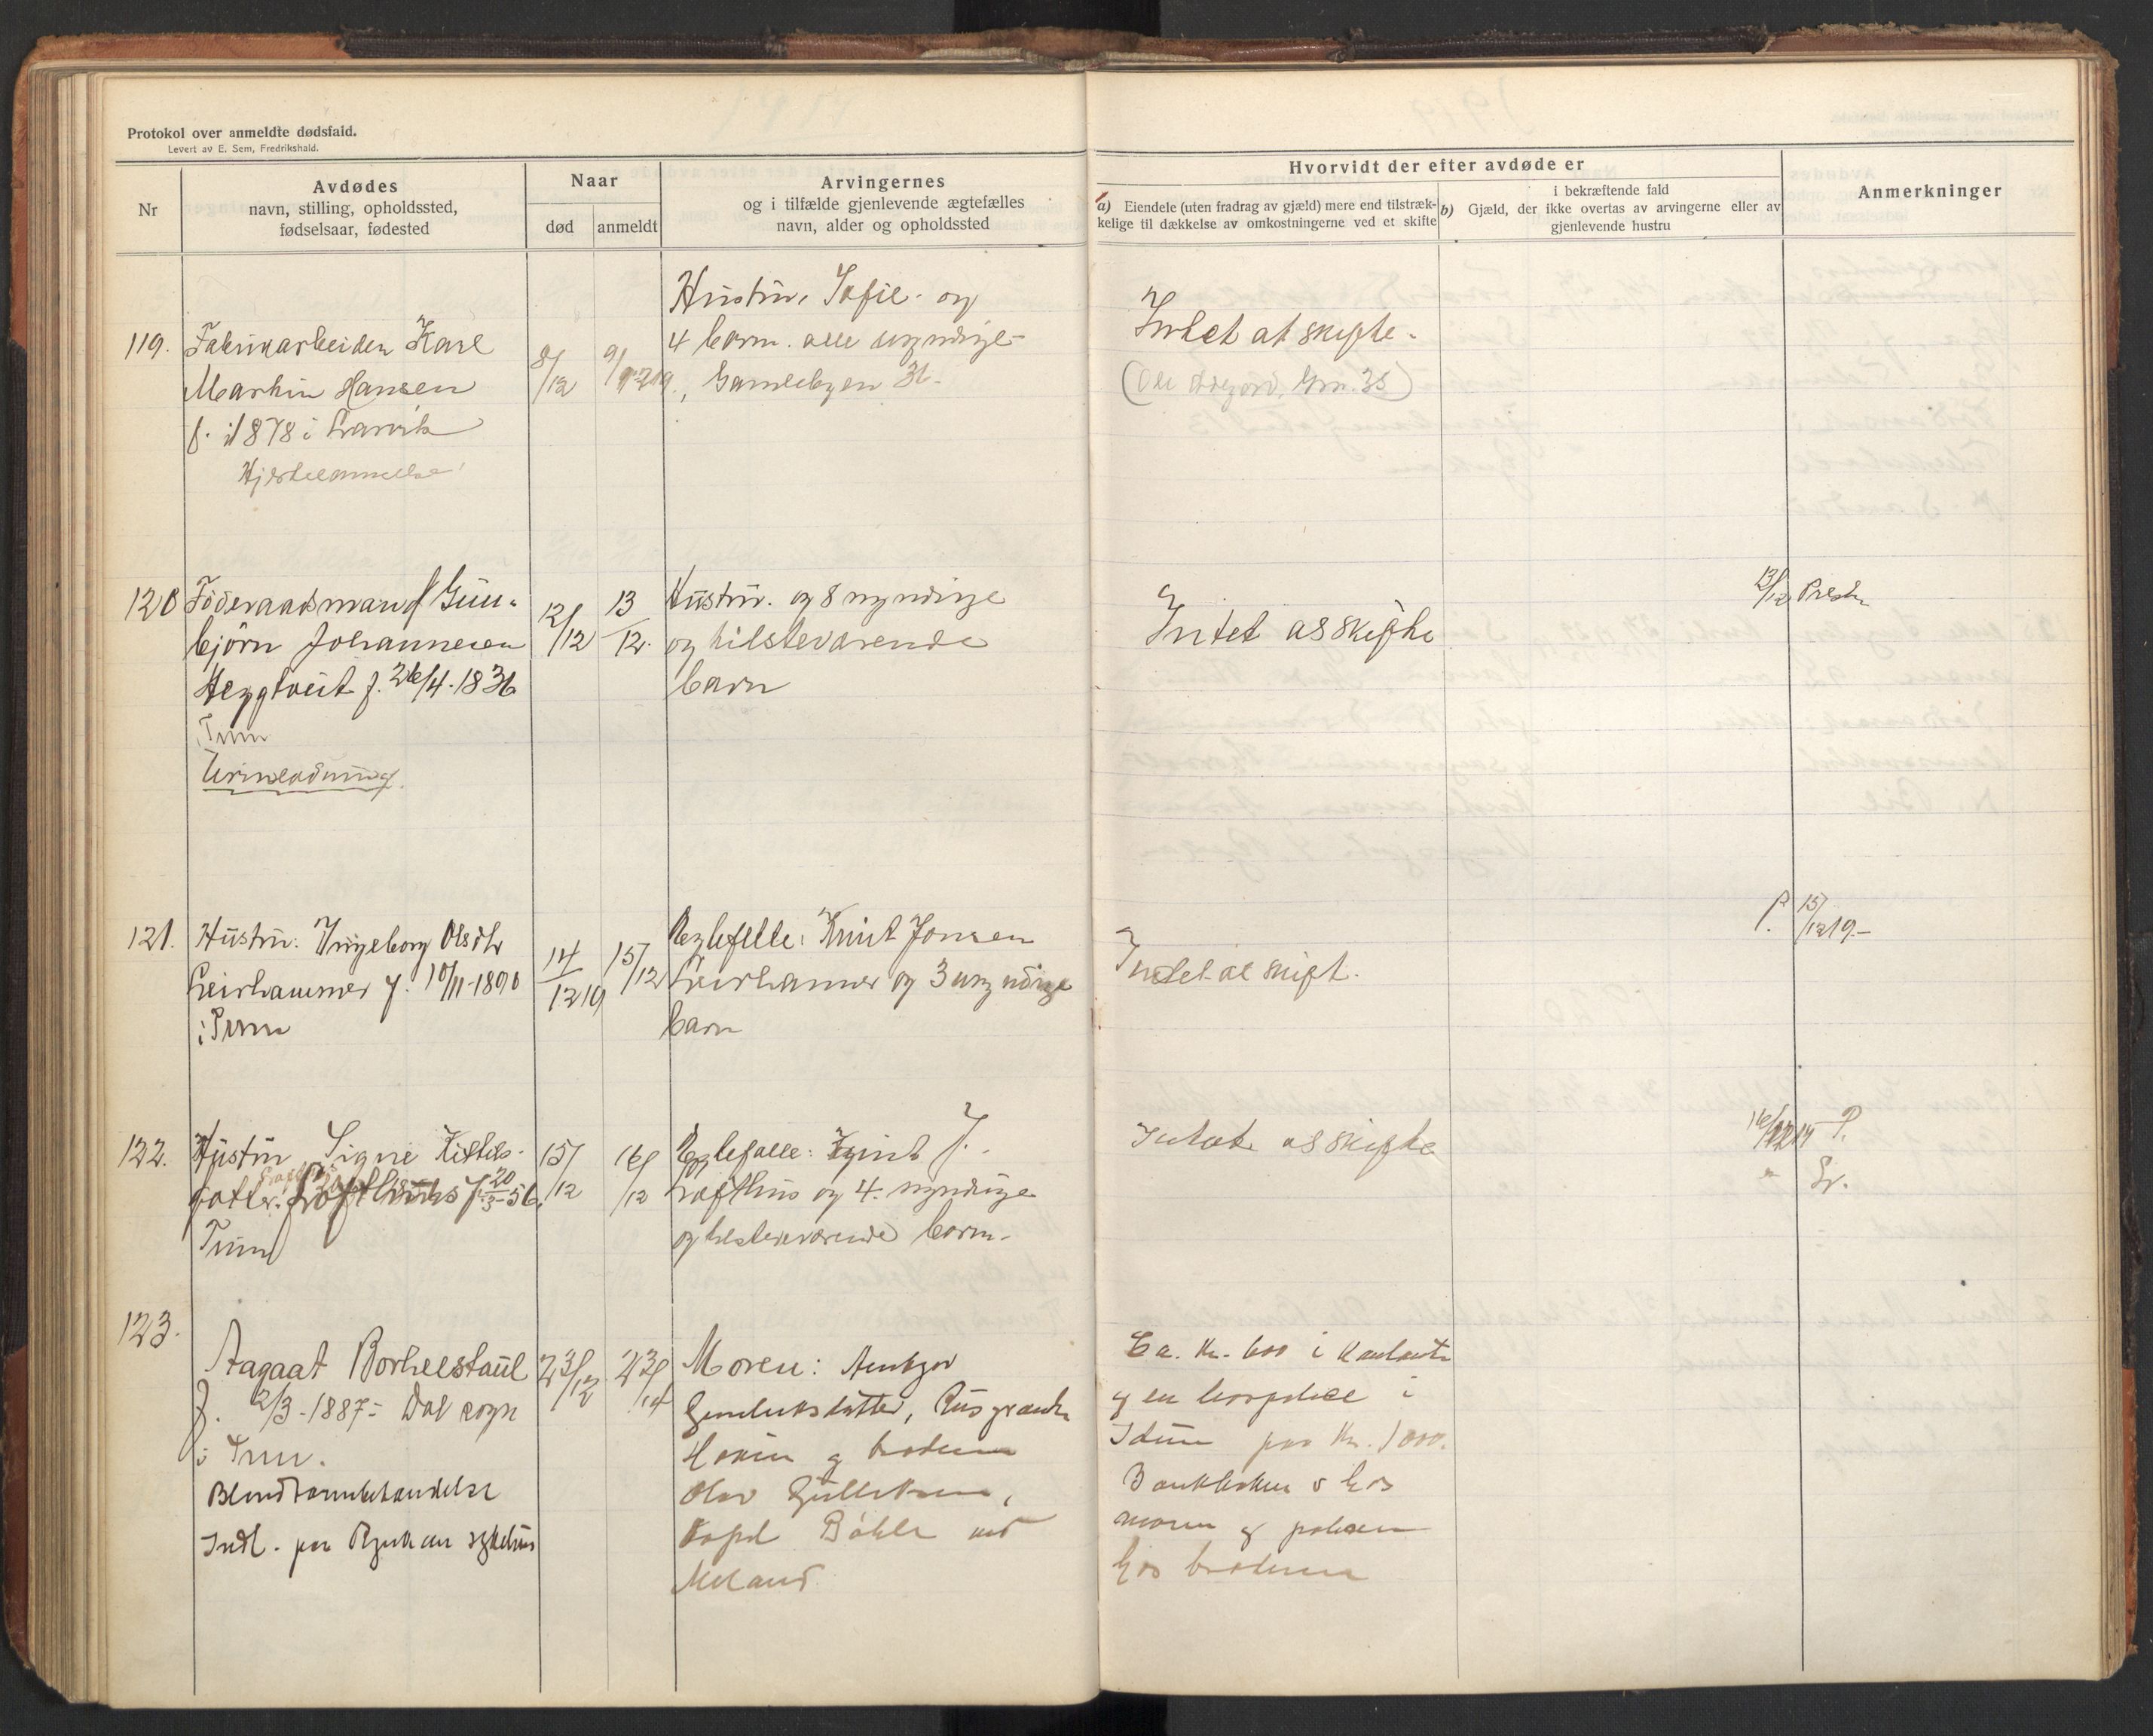 Protokol over anmeldte dødsfald.
Levert av E. Sem, Fredrikshald.
Nr
Avdødes
navn, stilling, opholdssted,
fødselsaar, fødested
Naar
død
anmeldt
Arvingernes
og i tilfælde gjenlevende ægtefælles
navn, alder og opholdssted
Hvorvidt der efter avdøde er
a) Eiendele (uten fradrag av gjæld) mere end tilstræk-
kelige til dækkelse av omkostningerne ved et skifte
i bekræftende fald
b) Gjæld, der ikke overtas av arvingerne eller av
gjenlevende hustru
Anmerkninger
119.
Fabrikarbeider Karl
Martin Hansen
f. i 1878 i Larvik
Hjertelammelse
8/12
9/12 19
Hustru, Sofie og
4 barn. alle umyndige
Gamlebyen 31.
Intet at skifte.
120
Föderaadsmand Gun-
björn Johannesen
Heggtveit f. 26/4-1836
Tinn
Urinladning.
12/12
13/12.
Hustru. og 8 myndige
og tilstevarende
barn
Intet at skifte
13/12 Presten
121.
Hustru. Ingeborg Olsdtr
Leirhammer f. 10/11-1890
i Tinn
14/12 19
15/12
Egtefelle: Knut Jonsen
Leirhammer og 3 umyndige
barn
Intet at skift.
P. 15/12 19.-
122.
Hustru Signe Kittils-
datter. Lofthus f. 20/3-56.
Tinn
15/12
16/12
Egtefelle: Knut J.
Lofthus og 4. myndige
og tilstedeværende barn.
Intet at skifte
16/12 19 P.
" Lr.
123.
Aagaat Borheestaul
f. 2/3-1887- Dal sogn
i Tinn.
Blindtarmbehandelse
Indl. paa Rjukan sykehus
23/12
23/12
Moren: Aasbjør
Gunleiksdatter, Busgrænd
Hovin og broderen
Olav Gulleksen,
Böhle ved
Meland
Ca. Kr. 600 i kontanter
og en livspolise i
Idun paa Kr. 1000.
Bankboken o hos
moren og polisen
hos broderen